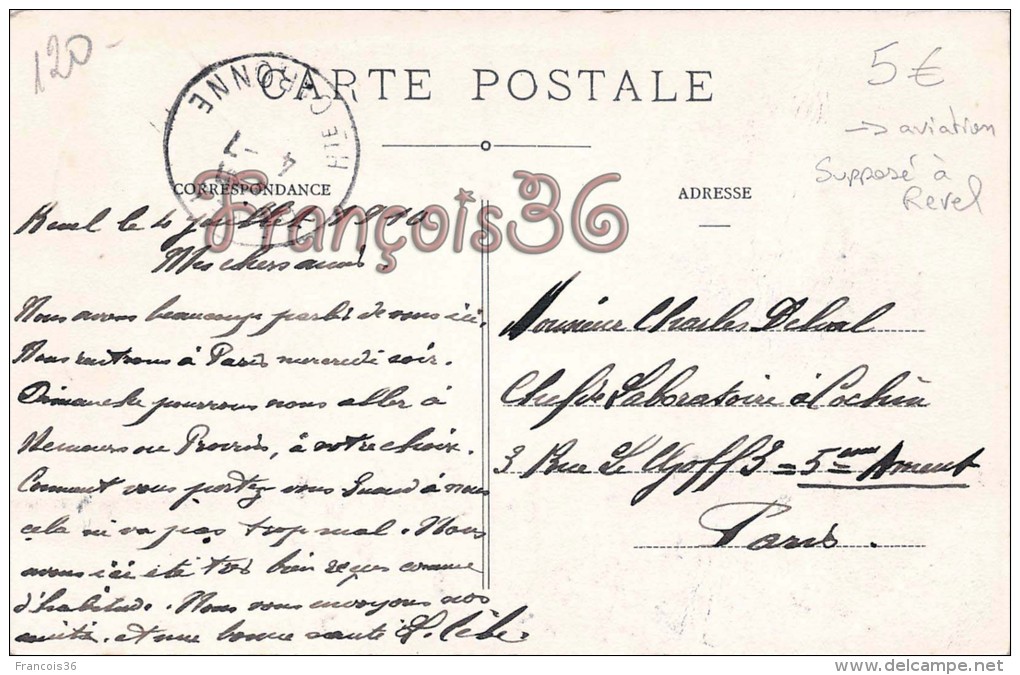 120-
CARTE POSTALE
HTE GARONNE
4 - 7
5 €
-> aviation
Supposé à
Revel
CORRESPONDANCE
ADRESSE
François36
Revel le 4 juillet 1910
Mes chers amis,
Nous avons beaucoup parlé de vous ici.
Nous rentrons à Paris mercredi soir.
Dimanche pourrons nous aller à
Nemours ou Provins, à votre choix.
Comment vous portez vous Quand à nous
cela ne va pas trop mal. Nous
avons ici été très bien reçus comme
d'habitude. Nous vous envoyons nos
amitiés et une bonne santé
Monsieur Charles Delval
Chef de Laboratoire à Cochin
3 Rue Le Goff 3 = 5eme Arment
Paris.
Francois36
www.delcampe.net